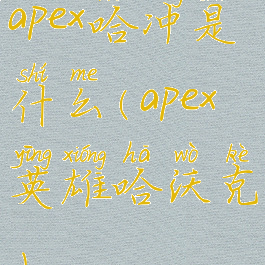 apex哈沖是
shí me
什么(apex
yīng xióng hā wò kè
英雄哈沃克
)